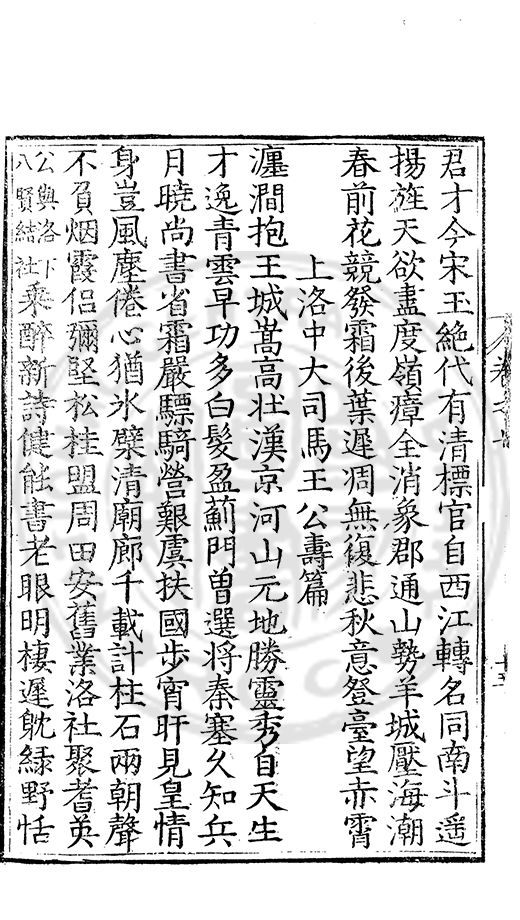 君才今宋玉絶代有清標官自西江轉名同南斗遥
揚旌天欲盡度嶺瘴全消象郡通山勢羊城壓海潮
春前花競發霜後葉遲凋無復悲秋意登臺望赤霄
上洛中大司馬王公壽篇
瀍澗抱王城嵩高壯漢京河山元地勝靈秀自天生
才逸青雲早功多白髮盈薊門曽選將秦塞久知兵
月曉尚書省霜嚴驃騎營艱虞扶國步宵旰見皇情
身豈風塵倦心猶氷檗清廟廊千載計柱石兩朝聲
不負烟霞侣彌堅松桂盟周田安舊業洛社聚耆英
公與洛下八賢結社乘醉新詩健能書老眼明棲遲躭緑野恬